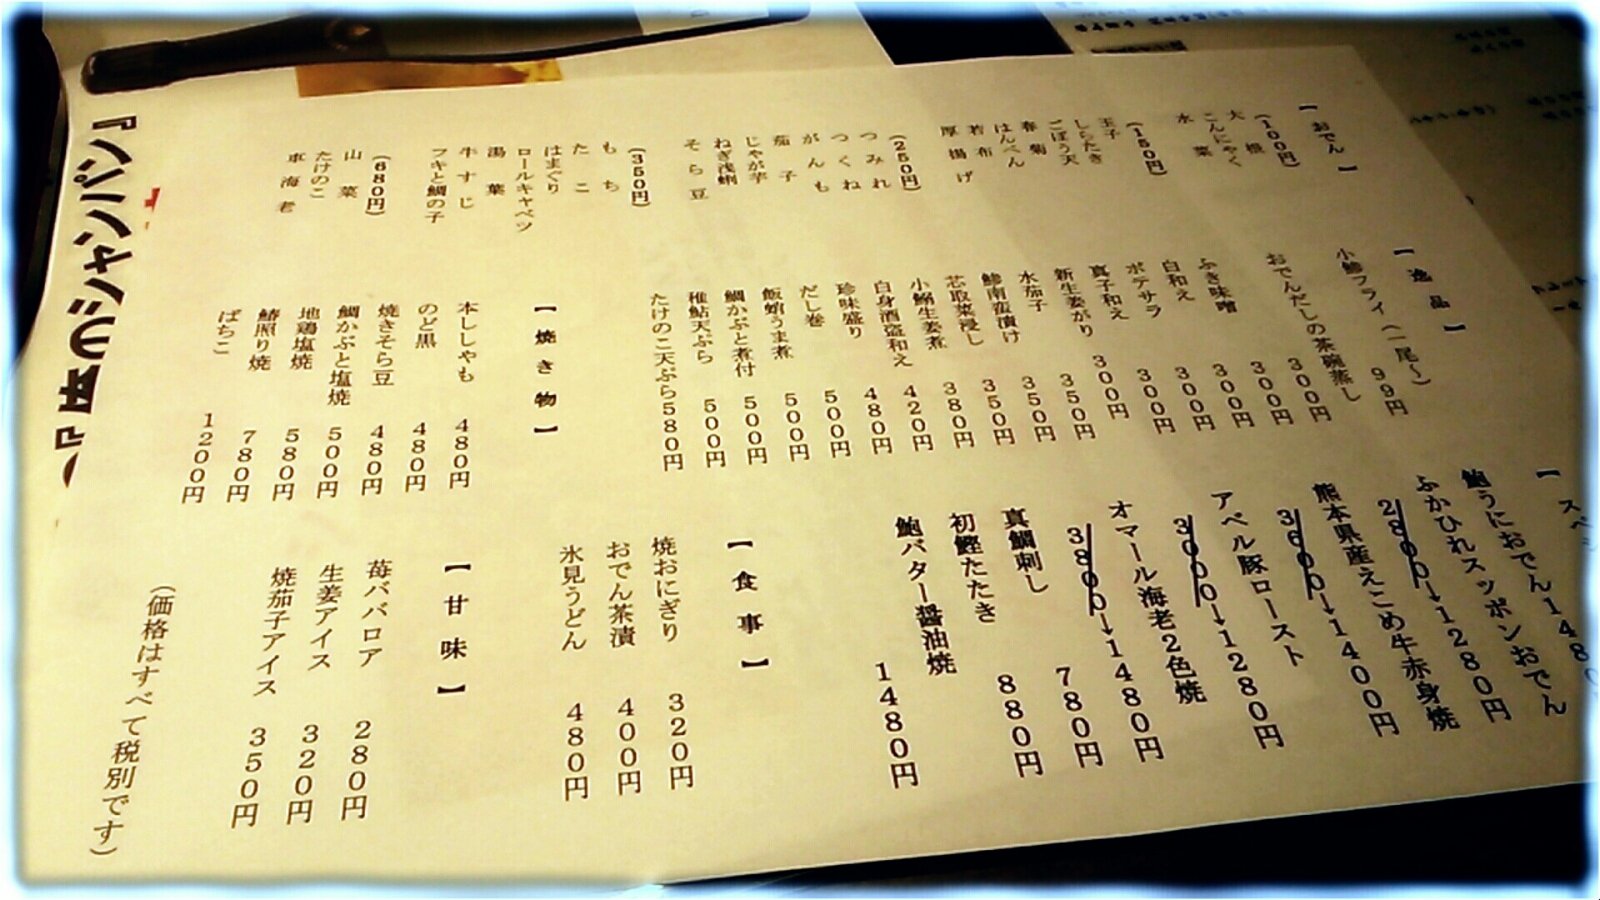 【おでん】
(100円)
大根
こんにゃく
水菜
(150円)
玉子
しらたき
ごぼう天
春菊
はんぺん
若布
厚揚げ
(250円)
つみれ
つくね
がんも
茄子
じゃが芋
ねぎ浅蜊
そら豆
(350円)
もち
たこ
はまぐり
ロールキャベツ
湯葉
牛すじ
フキと鯛の子
(680円)
山菜
たけのこ
車海老
【逸品】
小鯵フライ(一尾〜) 99円
おでんだしの茶碗蒸し 300円
ふき味噌 300円
白和え 300円
ポテサラ 300円
真子和え 300円
新生姜がり 300円
水茄子 350円
鯵南蛮漬け 350円
芯取菜浸し 350円
小鰯生姜煮 380円
白身酒盗和え 420円
珍味盛り 480円
だし巻 500円
飯蛸うま煮 500円
鯛かぶと煮付 500円
稚鮎天ぷら 500円
たけのこ天ぷら580円
【焼き物】
本ししゃも 480円
のど黒 480円
焼きそら豆 480円
鯛かぶと塩焼 500円
地鶏塩焼 580円
鰆照り焼 780円
ばちこ 1200円
鮑うにおでん148
ふかひれスッポンおでん
2800→1280円
熊本県産えこめ牛赤身焼
3600→1400円
アベル豚ロースト
3000→1280円
オマール海老2色焼
3800→1480円
真鯛刺し 780円
初鰹たたき 880円
鮑バター醤油焼 1480円
【食事】
焼おにぎり 320円
おでん茶漬 400円
氷見うどん 480円
【甘味】
苺ババロア 280円
生姜アイス 320円
焼茄子アイス 350円
(価格はすべて税別です)
のシャンパン』